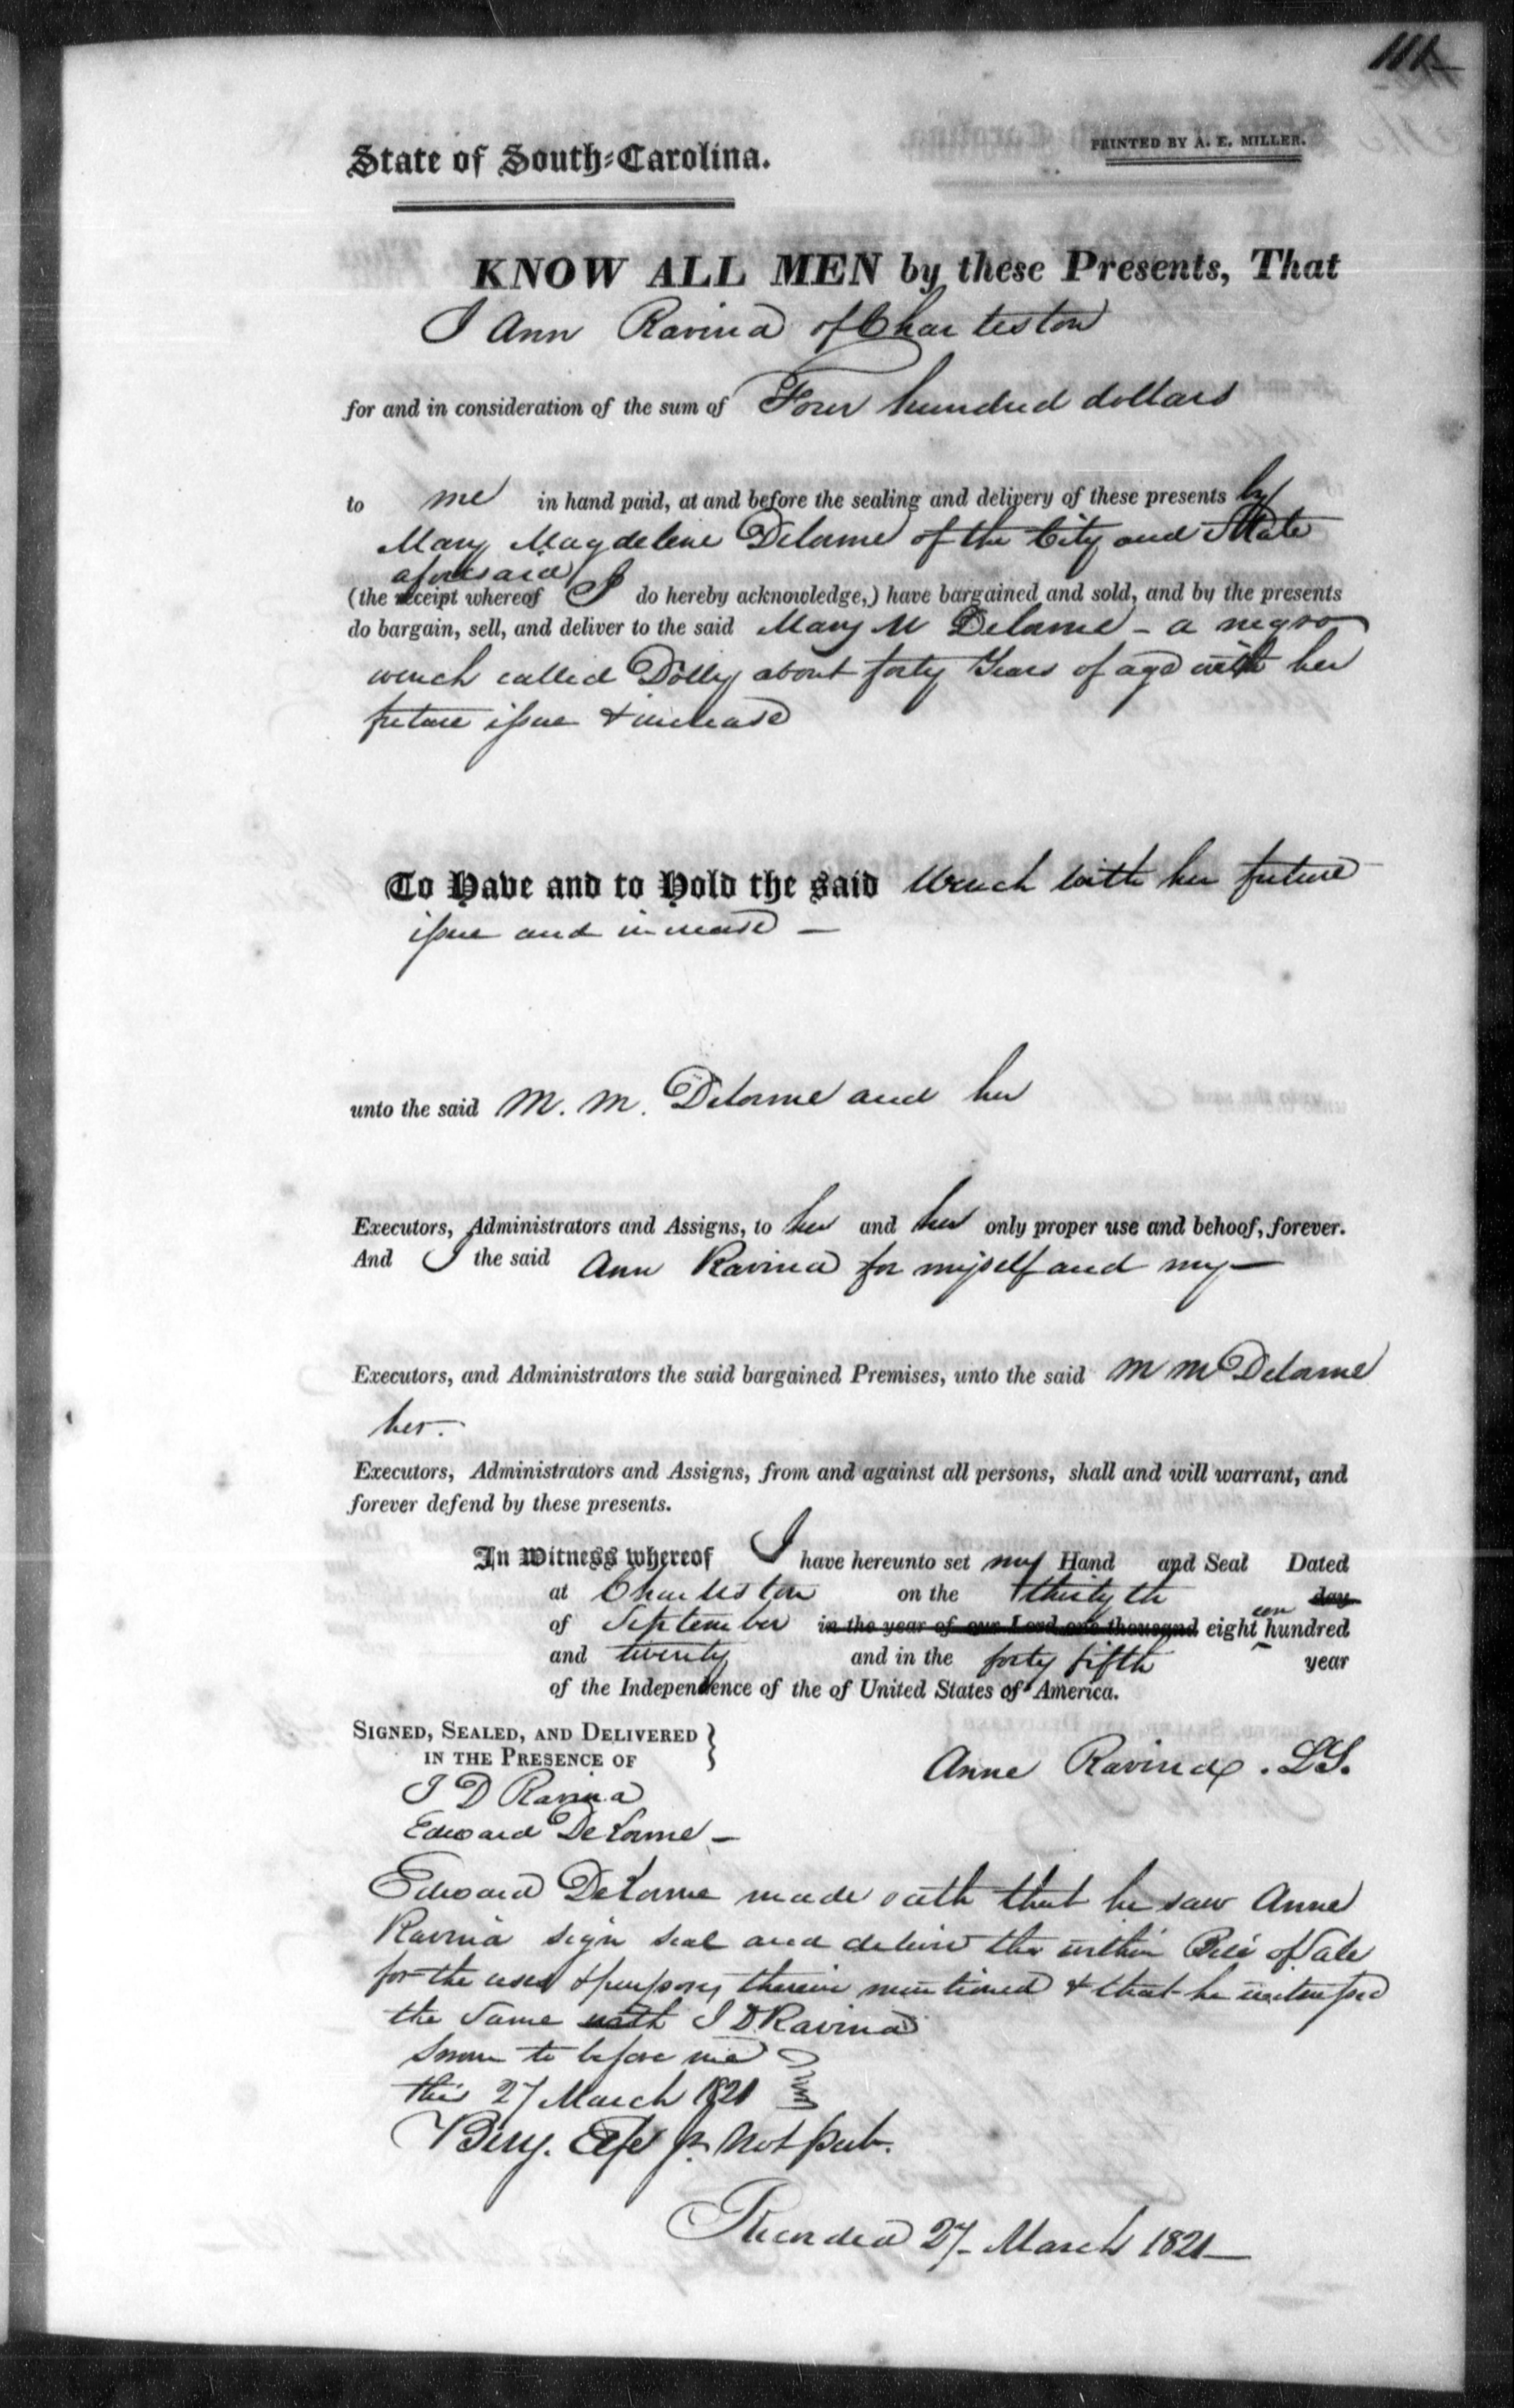 111
State of South-Carolina.
PRINTED BY A. E. MILLER.
KNOW ALL MEN by these Presents, That
I Ann Ravina of Charleston
for and in consideration of the sum of Four hundred dollars
to me in hand paid, at and before the sealing and delivery of these presents by
Mary Magdelene Delorme of the City and State
aforesaid
(the receipt whereof I do hereby acknowledge,) have bargained and sold, and by the presents
do bargain, sell, and deliver to the said Mary M Delorme - a negro
wench called Dolly about forty Years of age with her
future issue & increase
To Have and to Hold the said Wench with her future
issue and increase -
unto the said M. M. Delorme and her
Executors, Administrators and Assigns, to her and her only proper use and behoof, forever.
And I the said Ann Ravina for myself and my
Executors, and Administrators the said bargained Premises, unto the said M M Delorme
her.
Executors, Administrators and Assigns, from and against all persons, shall and will warrant, and
forever defend by these presents.
In Witness whereof I have hereunto set my Hand and Seal Dated
at Charleston on the thirtyth day
of September in the year of our Lord one thousand eighteen hundred
and twenty and in the forty fifth year
of the Independence of the of United States of America.
SIGNED, SEALED, AND DELIVERED
IN THE PRESENCE OF
Anne Ravina . LS.
J D Ravina
Edward DeLorme -
Edward DeLorme made oath that he saw Anne
Ravina sign seal and deliver the within Bill of Sale
for the uses & purposes therein mentioned & that he witnessed
the same with J D Ravina
Sworn to before me
this 27 March 1821
Benj. Not pub.
Recorded 27 March 1821